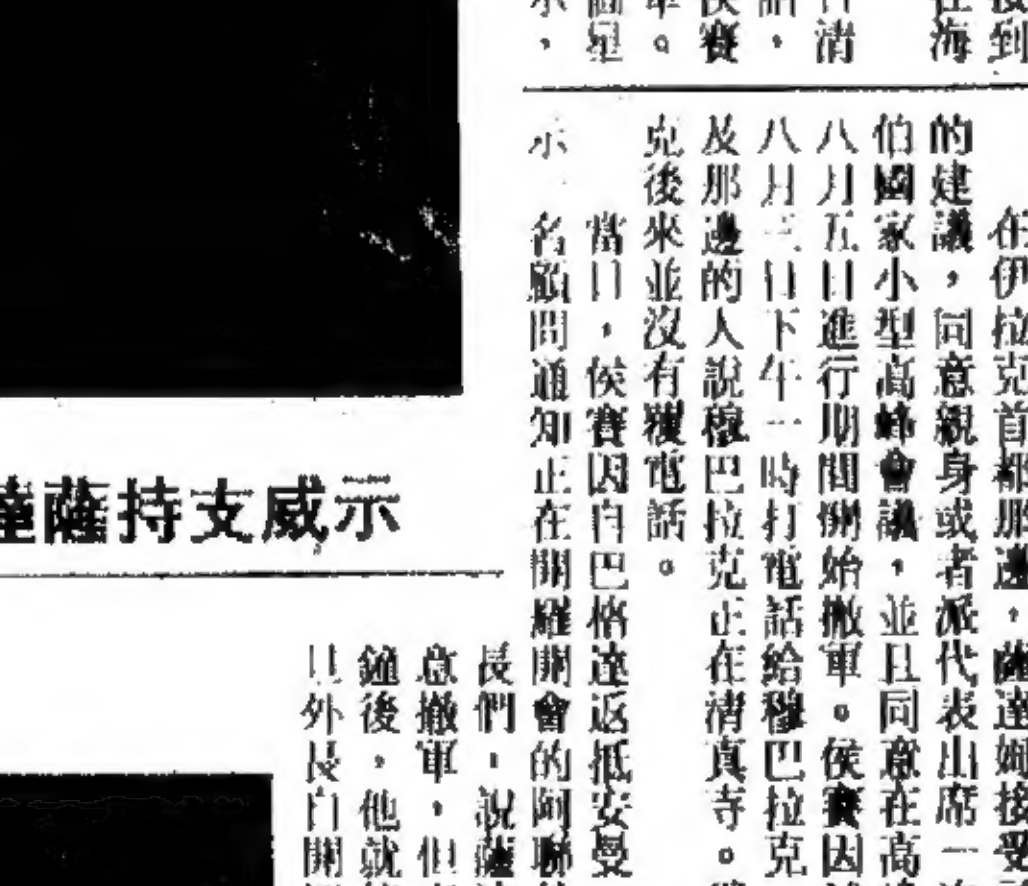 接到
在海
清
話，
侯賽
軍。
個星
示，
在伊拉克首都那邊，薩達姆接受
的建議，同意親身或者派代表出席一
伯國家小型高峰會議，並且同意在高
八月五日進行期間開始撤軍。侯賽因
八月三日下午一時打電話給穆巴拉克
及那邊的人說穆巴拉克正在清真寺。
克後來並沒有獲電話。
當日，侯賽因自巴格達返抵安曼
示
名顧問通知正在開羅開會的阿聯
長們，說薩
意撤軍，但
鐘後，他就
且外長自開
示威支持薩達